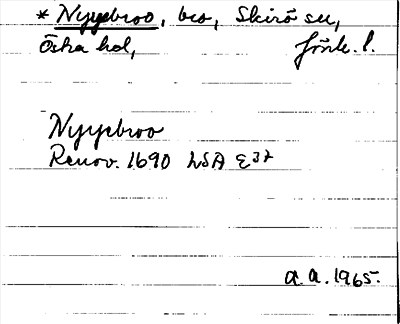 * Nyyebroo, bro, Skirö sn,
Östra hd, Jönk. l.
Nyyebroo
Renov. 1690 LSA E37
A. A. 1965.